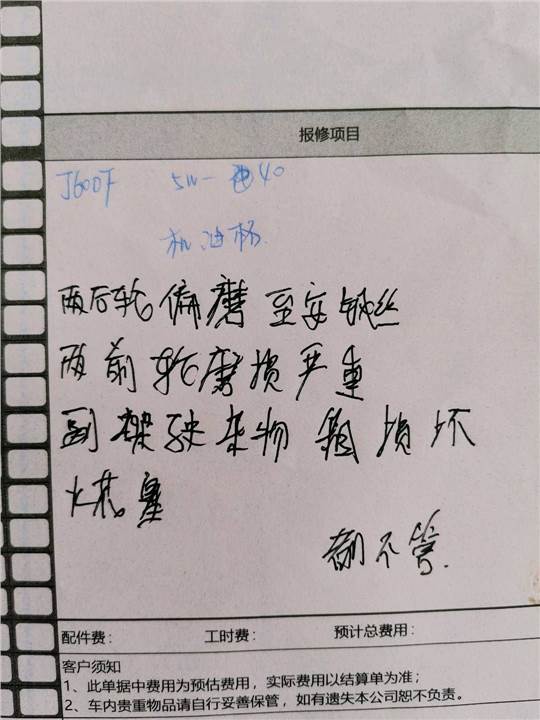 报修项目
J600F 5W-40
机油杯
两后轮偏磨至安钢丝
两前轮磨损严重
副驾驶杂物箱损坏
火花塞
都不管.
配件费： 工时费： 预计总费用：
客户须知
1、此单据中费用为预估费用，实际费用以结算单为准；
2、车内贵重物品请自行妥善保管，如有遗失本公司恕不负责。